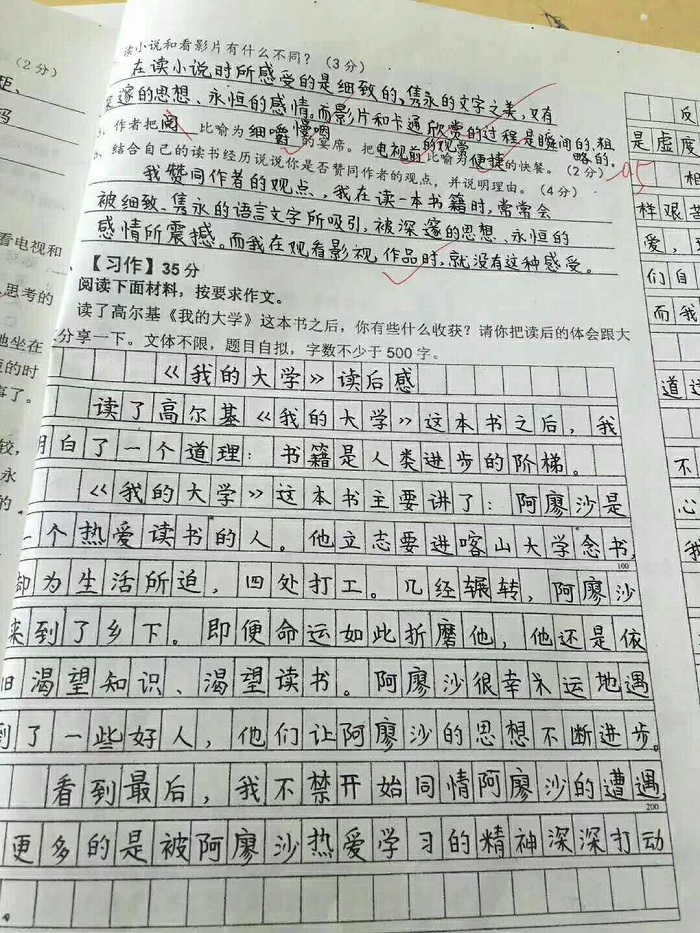 读小说和看影片有什么不同？（3分）
在读小说时所感受的是细致的、隽永的文字之美，又有
邃的思想、永恒的感情。而影片和卡通欣赏的过程是瞬间的、粗
略的。
作者把阅 比喻为细嚼慢咽的宴席。把电视前的观赏比喻为便捷的快餐。（2分）
结合自己的读书经历说说你是否赞同作者的观点，并说明理由。（4分）
我赞同作者的观点、，我在读一本书籍时，常常会
被细致、隽永的语言文字所吸引，被深邃的思想、永恒的
感情所震撼。而我在观看影视作品时，就没有这种感受。
【习作】35分
阅读下面材料，按要求作文。
读了高尔基《我的大学》这本书之后，你有些什么收获？请你把读后的体会跟大
分享一下。文体不限，题目自拟，字数不少于500字。
《我的大学》读后感
读了高尔基《我的大学》这本书之后，我
明白了一个道理：书籍是人类进步的阶梯。
《我的大学》这本书主要讲了：阿廖沙是
一个热爱读书的人。他立志要进喀山大学念书，
100
却为生活所迫，四处打工。几经辗转，阿廖沙
来到了乡下。即便命运如此折磨他，他还是依
旧渴望知识、渴望读书。阿廖沙很幸运地遇
到了一些好人，他们让阿廖沙的思想不断进步。
看到最后，我不禁开始同情阿廖沙的遭遇，
200
更多的是被阿廖沙热爱学习的精神深深打动
。
（2分）
码
看电视和
思考的
地坐在
的时
了。
较，
永
的。
反
是虚度
相
样艰苦
爱，
们自
而我
道这
不
心
我